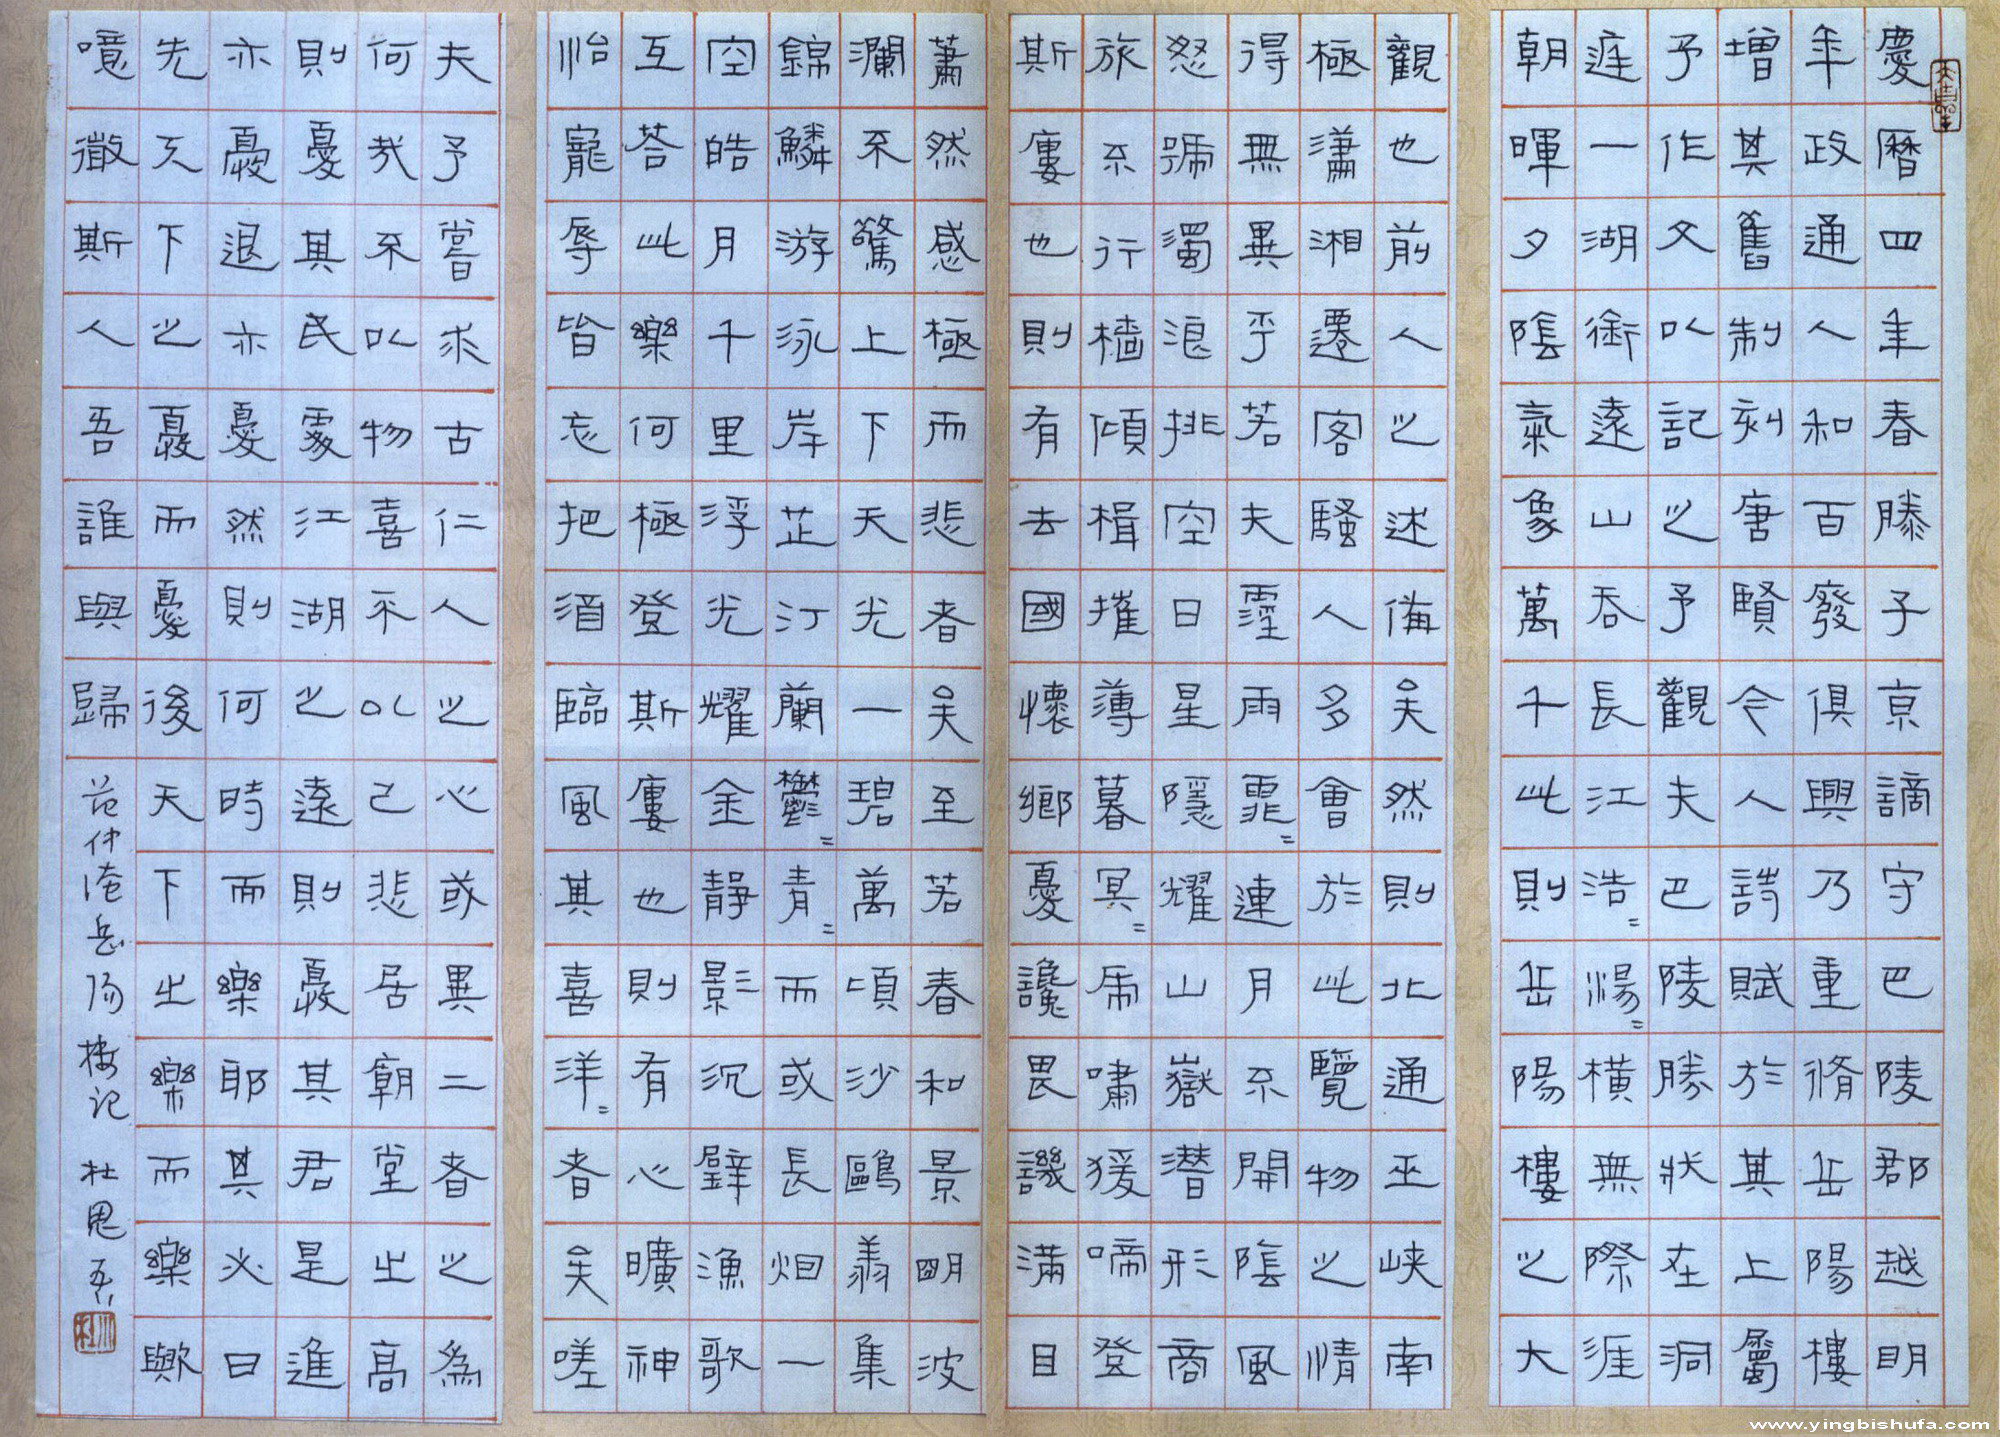 慶曆四年春滕子京謫守巴陵郡越明
年政通人和百廢俱興乃重脩岳陽樓
增其舊制刻唐賢今人詩賦於其上屬
予作文以記之予觀夫巴陵勝狀在洞
庭一湖銜遠山吞長江浩=湯=橫無際涯
朝暉夕陰氣象萬千此則岳陽樓之大
觀也前人之述備矣然則北通巫峽南
極瀟湘遷客騷人多會於此覽物之情
得無異乎若夫霪雨霏=連月不開陰風
怒號濁浪排空日星隱耀山嶽潛形商
旅不行檣傾楫摧薄暮冥=虎嘯猨啼登
斯廔也則有去國懷鄉憂讒畏譏滿目
蕭然感極而悲者矣至若春和景明波
瀾不驚上下天光一碧萬頃沙鷗翔集
錦鱗游泳岸芷汀蘭鬱=青=而或長烟一
空皓月千里浮光耀金靜影沉璧漁歌
互荅此樂何極登斯廔也則有心曠神
怡寵辱皆忘把酒臨風其喜洋=者矣嗟
夫予嘗求古仁人之心或異二者之為
何哉不以物喜不以己悲居廟堂之高
則憂其民處江湖之遠則憂其君是進
亦憂退亦憂然則何時而樂耶其必曰
先天下之憂而憂後天下之樂而樂歟
噫微斯人吾誰與歸 范仲淹岳陽樓記 杜
www.yingbishufa.com